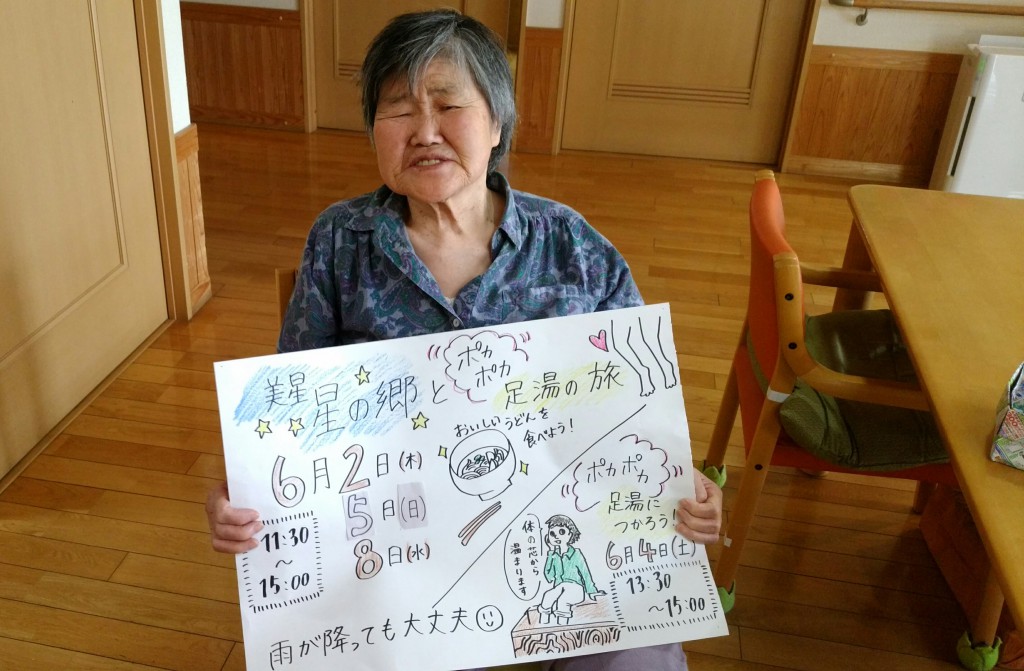 美星 星の郷と
ポカ
ポカ
足湯の旅
おいしいうどんを
食べよう！
6月2日(木)
5日(日)
8日(水)
11:30
～
15:00
ポカポカ
足湯に
つかろう！
体の芯から
温まります
6月4日(土)
13:30
～15:00
雨が降っても大丈夫